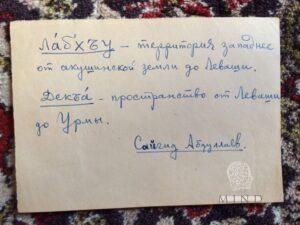 Ла́бхъу – территория западнее
от акушинской земли до Леваши.
Декьа́ – пространство от Леваши
до Урмы.
Сайгид Абдуллаев.
MIND